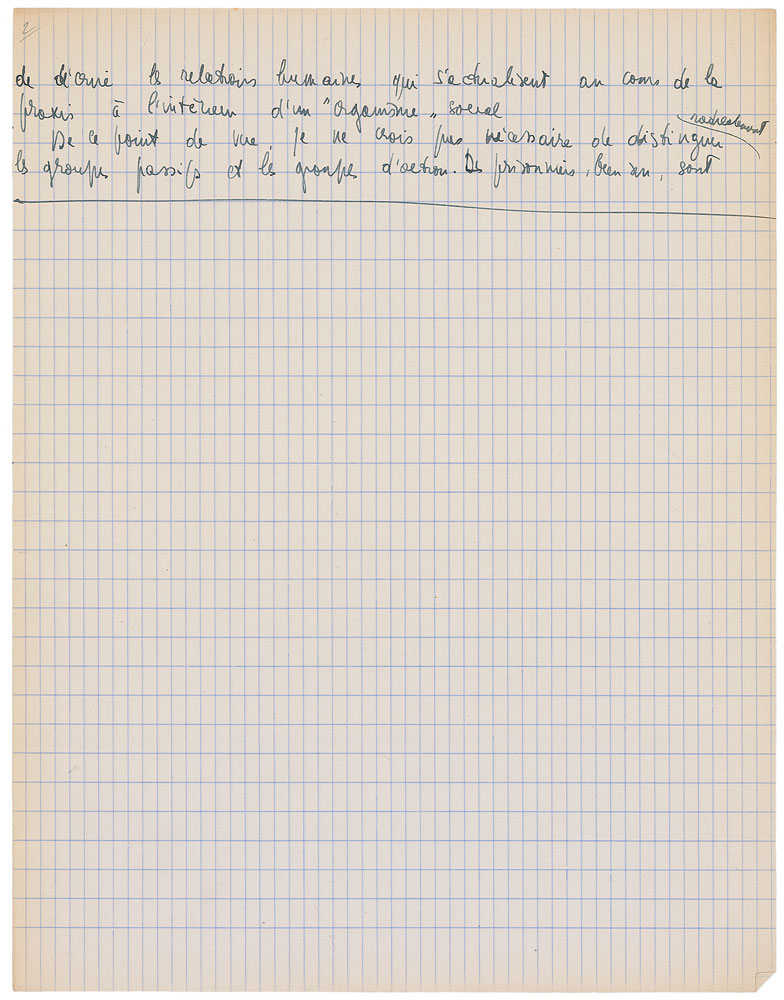 2
de décrire les relations humaines qui s'actualisent au cours de la
praxis à l'intérieur d'un "organisme" social
radicalement
De ce point de vue, je ne crois pas nécessaire de distinguer
les groupes passifs et les groupes d'action. Des prisonniers, bien sûr, sont